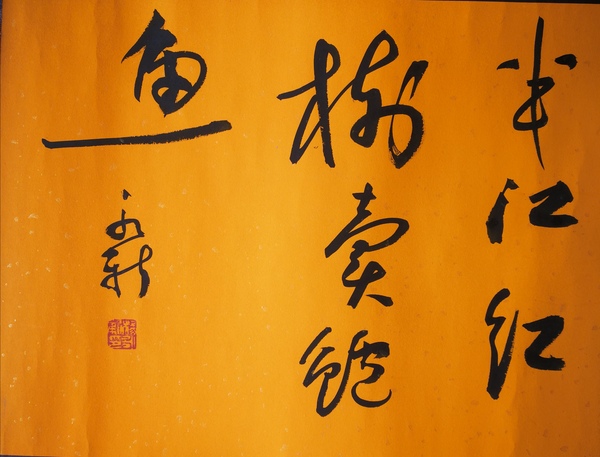 半江红
树卖鲈
鱼
永新